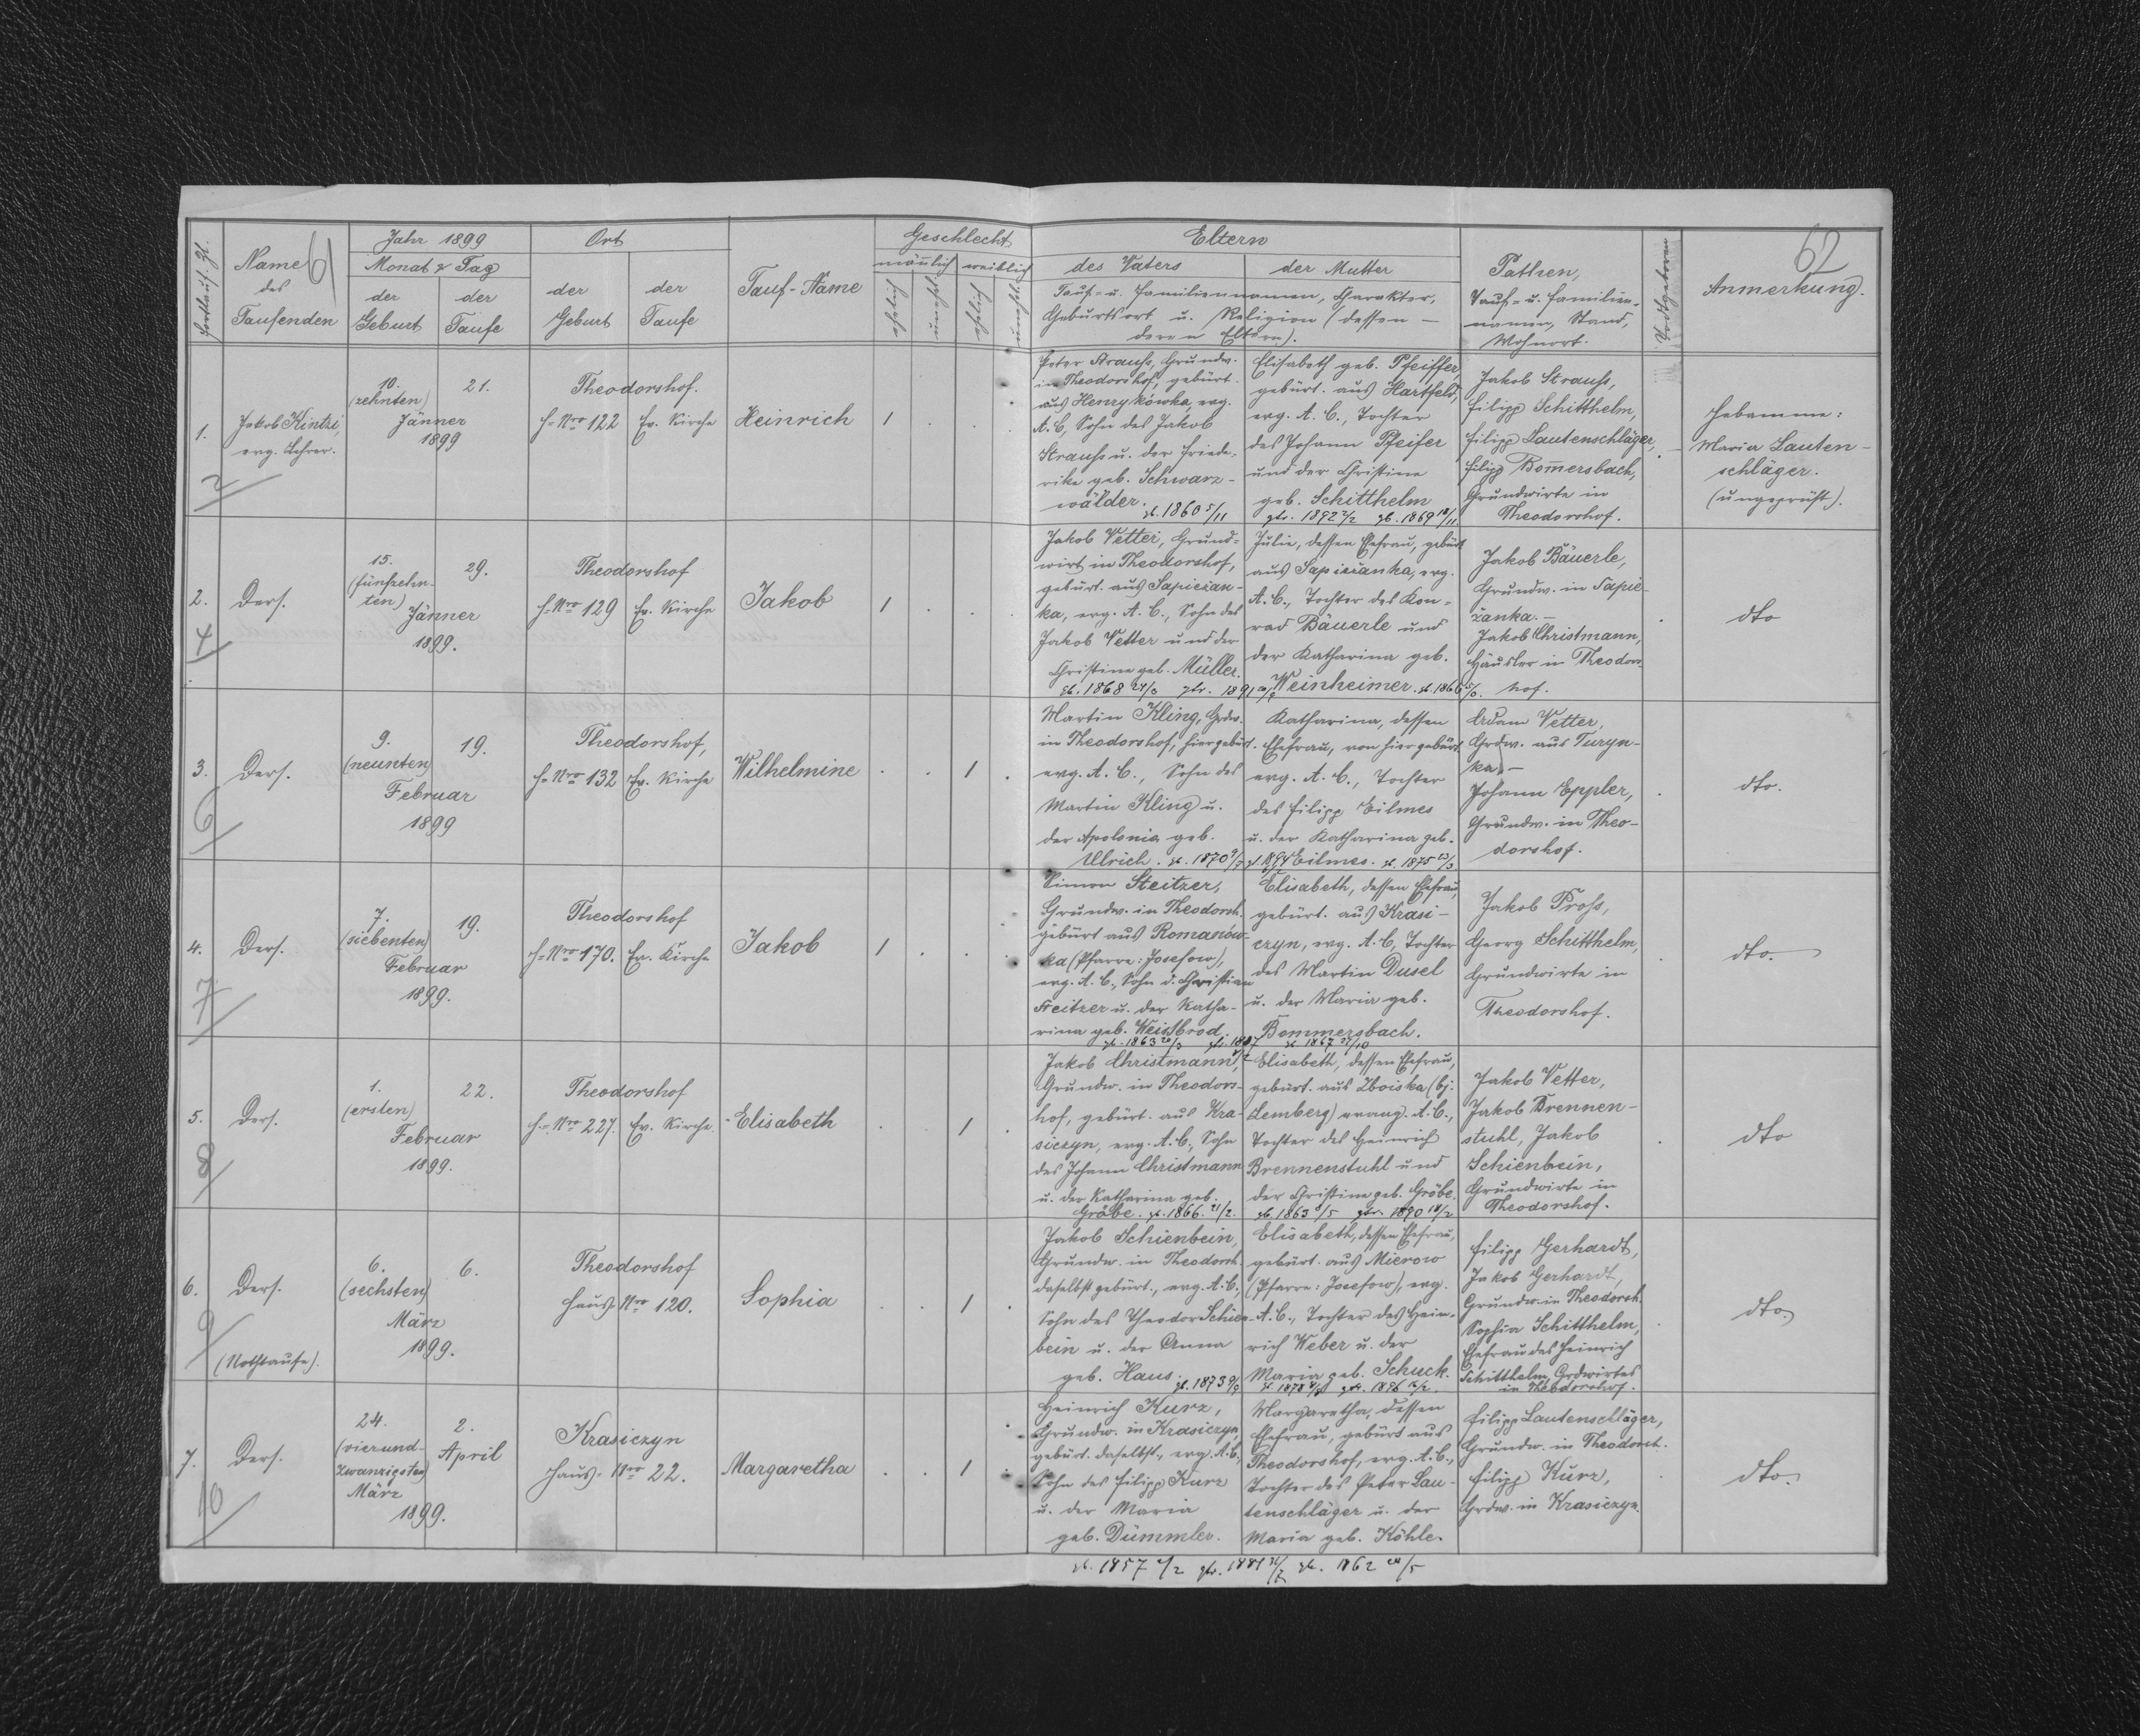 6
62
Fortlauf. Zl.
Name
des
Taufenden
Jahr 1899
Monat & Tag
der
Geburt
der
Taufe
Ort
der
Geburt
der
Taufe
Tauf-Name
Geschlecht
mänlich
weiblich
ehelich
unehl.
ehelich
unehl.
Eltern
des Vaters
der Mutter
Tauf- u. Familiennamen, Charakter,
Geburtsort u. Religion (dessen —
deren Eltern).
Pathen,
Tauf- u. Familien-
namen, Stand,
Wohnort.
Todtgeboren
Anmerkung.
1.
2
Jakob Kintzi,
evg. Lehrer.
10.
(zehnten)
Jänner
1899
21.
Theodorshof.
H-Nro 122
Ev. Kirche
Heinrich
1
Peter Strauss, Grundw.
in Theodorshof, gebürt.
aus Henrykówka, evg.
A. C., Sohn des Jakob
Strauss u. der Friede-
rike geb. Schwarz-
wälder.
gb. 1860 5/11
Elisabeth geb. Pfeiffer,
gebürt. aus Hartfeld,
evg. A. C., Tochter
des Johann Pfeifer
und der Christine
geb. Schitthelm
gtr. 1892 2/2 gb. 1869 18/11
Jakob Strauss,
Filipp Schitthelm,
Filipp Lautenschläger,
Filipp Bom̄ersbach,
Grundwirte in
Theodorshof.
Hebamme:
Maria Lauten-
schläger.
(ungeprüft).
2.
4
Ders.
15.
(fünfzehn-
ten)
Jänner
1899.
29.
Theodorshof
H-Nro 129
Ev. Kirche
Jakob
1
Jakob Vetter, Grund-
wirt in Theodorshof,
gebürt. aus Sapieżan-
ka, evg. A. C., Sohn des
Jakob Vetter und der
Christine geb. Müller.
gb. 1868 24/3 gtr. 1891
Julie, dessen Ehefrau, gebürt
aus Sapieżanka, evg.
A. C., Tochter des Kon-
rad Bäuerle und
der Katharina geb.
Weinheimer. gb. 1866
Jakob Bäuerle,
Grundw. in Sapie-
żanka. —
Jakob Christmann,
Häusler in Theodors-
hof.
dto
3.
6
Ders.
9.
(neunten)
Februar
1899
19.
Theodorshof,
H-Nro 132
Ev. Kirche
Wilhelmine
1
Martin Kling, Grdw.
in Theodorshof, hier gebürt.
evg. A. C., Sohn des
Martin Kling u.
der Apolonia geb.
Ulrich. gb. 1870 9/7
Katharina, dessen
Ehefrau, von hier gebürt
evg. A. C., Tochter
des Filipp Eilmes
u. der Katharina geb.
Eilmes. gb. 1875 23/3
Adam Vetter,
Grdw. aus Turyn-
ka, —
Johann Eppler,
Grundw. in Theo-
dorshof.
dto.
4.
7
Ders.
7.
(siebenten)
Februar
1899.
19.
Theodorshof
H-Nro 170.
Ev. Kirche
Jakob
1
Simon Steitzer,
Grundw. in Theodorsh.
gebürt aus Romanów-
ka (Pfarre: Josefow),
evg. A. C., Sohn d. Christian
Steitzer u. der Katha-
rina geb. Weissbrod.
gb. 1863 20/3
Elisabeth, dessen Ehefrau,
gebürt. aus Krasi-
czyn, evg. A. C., Tochter
des Martin Dusel
u. der Maria geb.
Bommersbach.
gb. 1867 27/10
Jakob Pross,
Georg Schitthelm,
Grundwirte in
Theodorshof.
dto.
5.
8
Ders.
1.
(ersten)
Februar
1899.
22.
Theodorshof
H-Nro 227.
Ev. Kirche
Elisabeth
1
Jakob Christmann,
Grundw. in Theodors-
hof, gebürt. aus Kra-
siczyn, evg. A. C., Sohn
des Johann Christmann
u. der Katharina geb.
Gräbe. gb. 1866. 21/2.
Elisabeth, dessen Ehefrau,
gebürt. aus Zboiska (bj.
Lemberg) evang. A. C.,
Tochter des Heinrich
Brennenstuhl und
der Christine geb. Gröbe.
gb. 1863 8/5 gtr. 1890 18/2
Jakob Vetter,
Jakob Brennen-
stuhl, Jakob
Schienbein,
Grundwirte in
Theodorshof.
dto
6.
9
Ders.
(Nothtaufe).
6.
(sechsten)
März
1899.
6.
Theodorshof
Haus-Nro 120.
Sophia
1
Jakob Schienbein,
Grundw. in Theodorsh.
daselbst gebürt., evg. A. C.,
Sohn des Theodor Schien-
bein u. der Anna
geb. Haus. gb. 1873 9/9
Elisabeth, dessen Ehefrau,
gebürt. aus Mierow
(Pfarre: Josefow), evg.
A. C., Tochter des Hein-
rich Weber u. der
Maria geb. Schuck.
gtr. 1896
Filipp Gerhardt,
Jakob Gerhardt,
Grundw. in Theodorsh.
Sophia Schitthelm,
Ehefrau des Heinrich
Schitthelm, Grdwirtes
in Theodorshof.
dto.
7.
10
Ders.
24.
(vierund-
zwanzigsten)
März
1899.
2.
April
Krasiczyn
Haus-Nro 22.
Margaretha
1
Heinrich Kurz,
Grundw. in Krasiczyn,
gebürt. daselbst., evg. A. C.,
Sohn des Filipp Kurz
u. der Maria
geb. Dümmler.
Margaretha, dessen
Ehefrau, gebürt aus
Theodorshof, evg. A. C.,
Tochter des Peter Lau-
tenschläger u. der
Maria geb. Köhle.
Filipp Lautenschläger,
Grundw. in Theodorsh.
Filipp Kurz,
Grdw. in Krasiczyn.
dto.
gb. 1857 2/2 gtr. 1881 gb. 1862 20/5